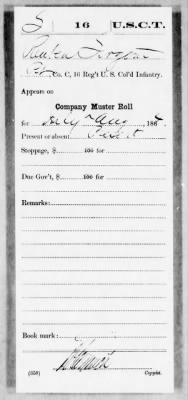 S 16 U.S.C.T.
Co. C, 16 Reg't U. S. Col'd Infantry.
Appears on
Company Muster Roll
for July & Aug, 186
Present or absent, Present
Stoppage, $ 100 for
Due Gov't, $ 100 for
Remarks:
Book mark:
(358) Copyist.